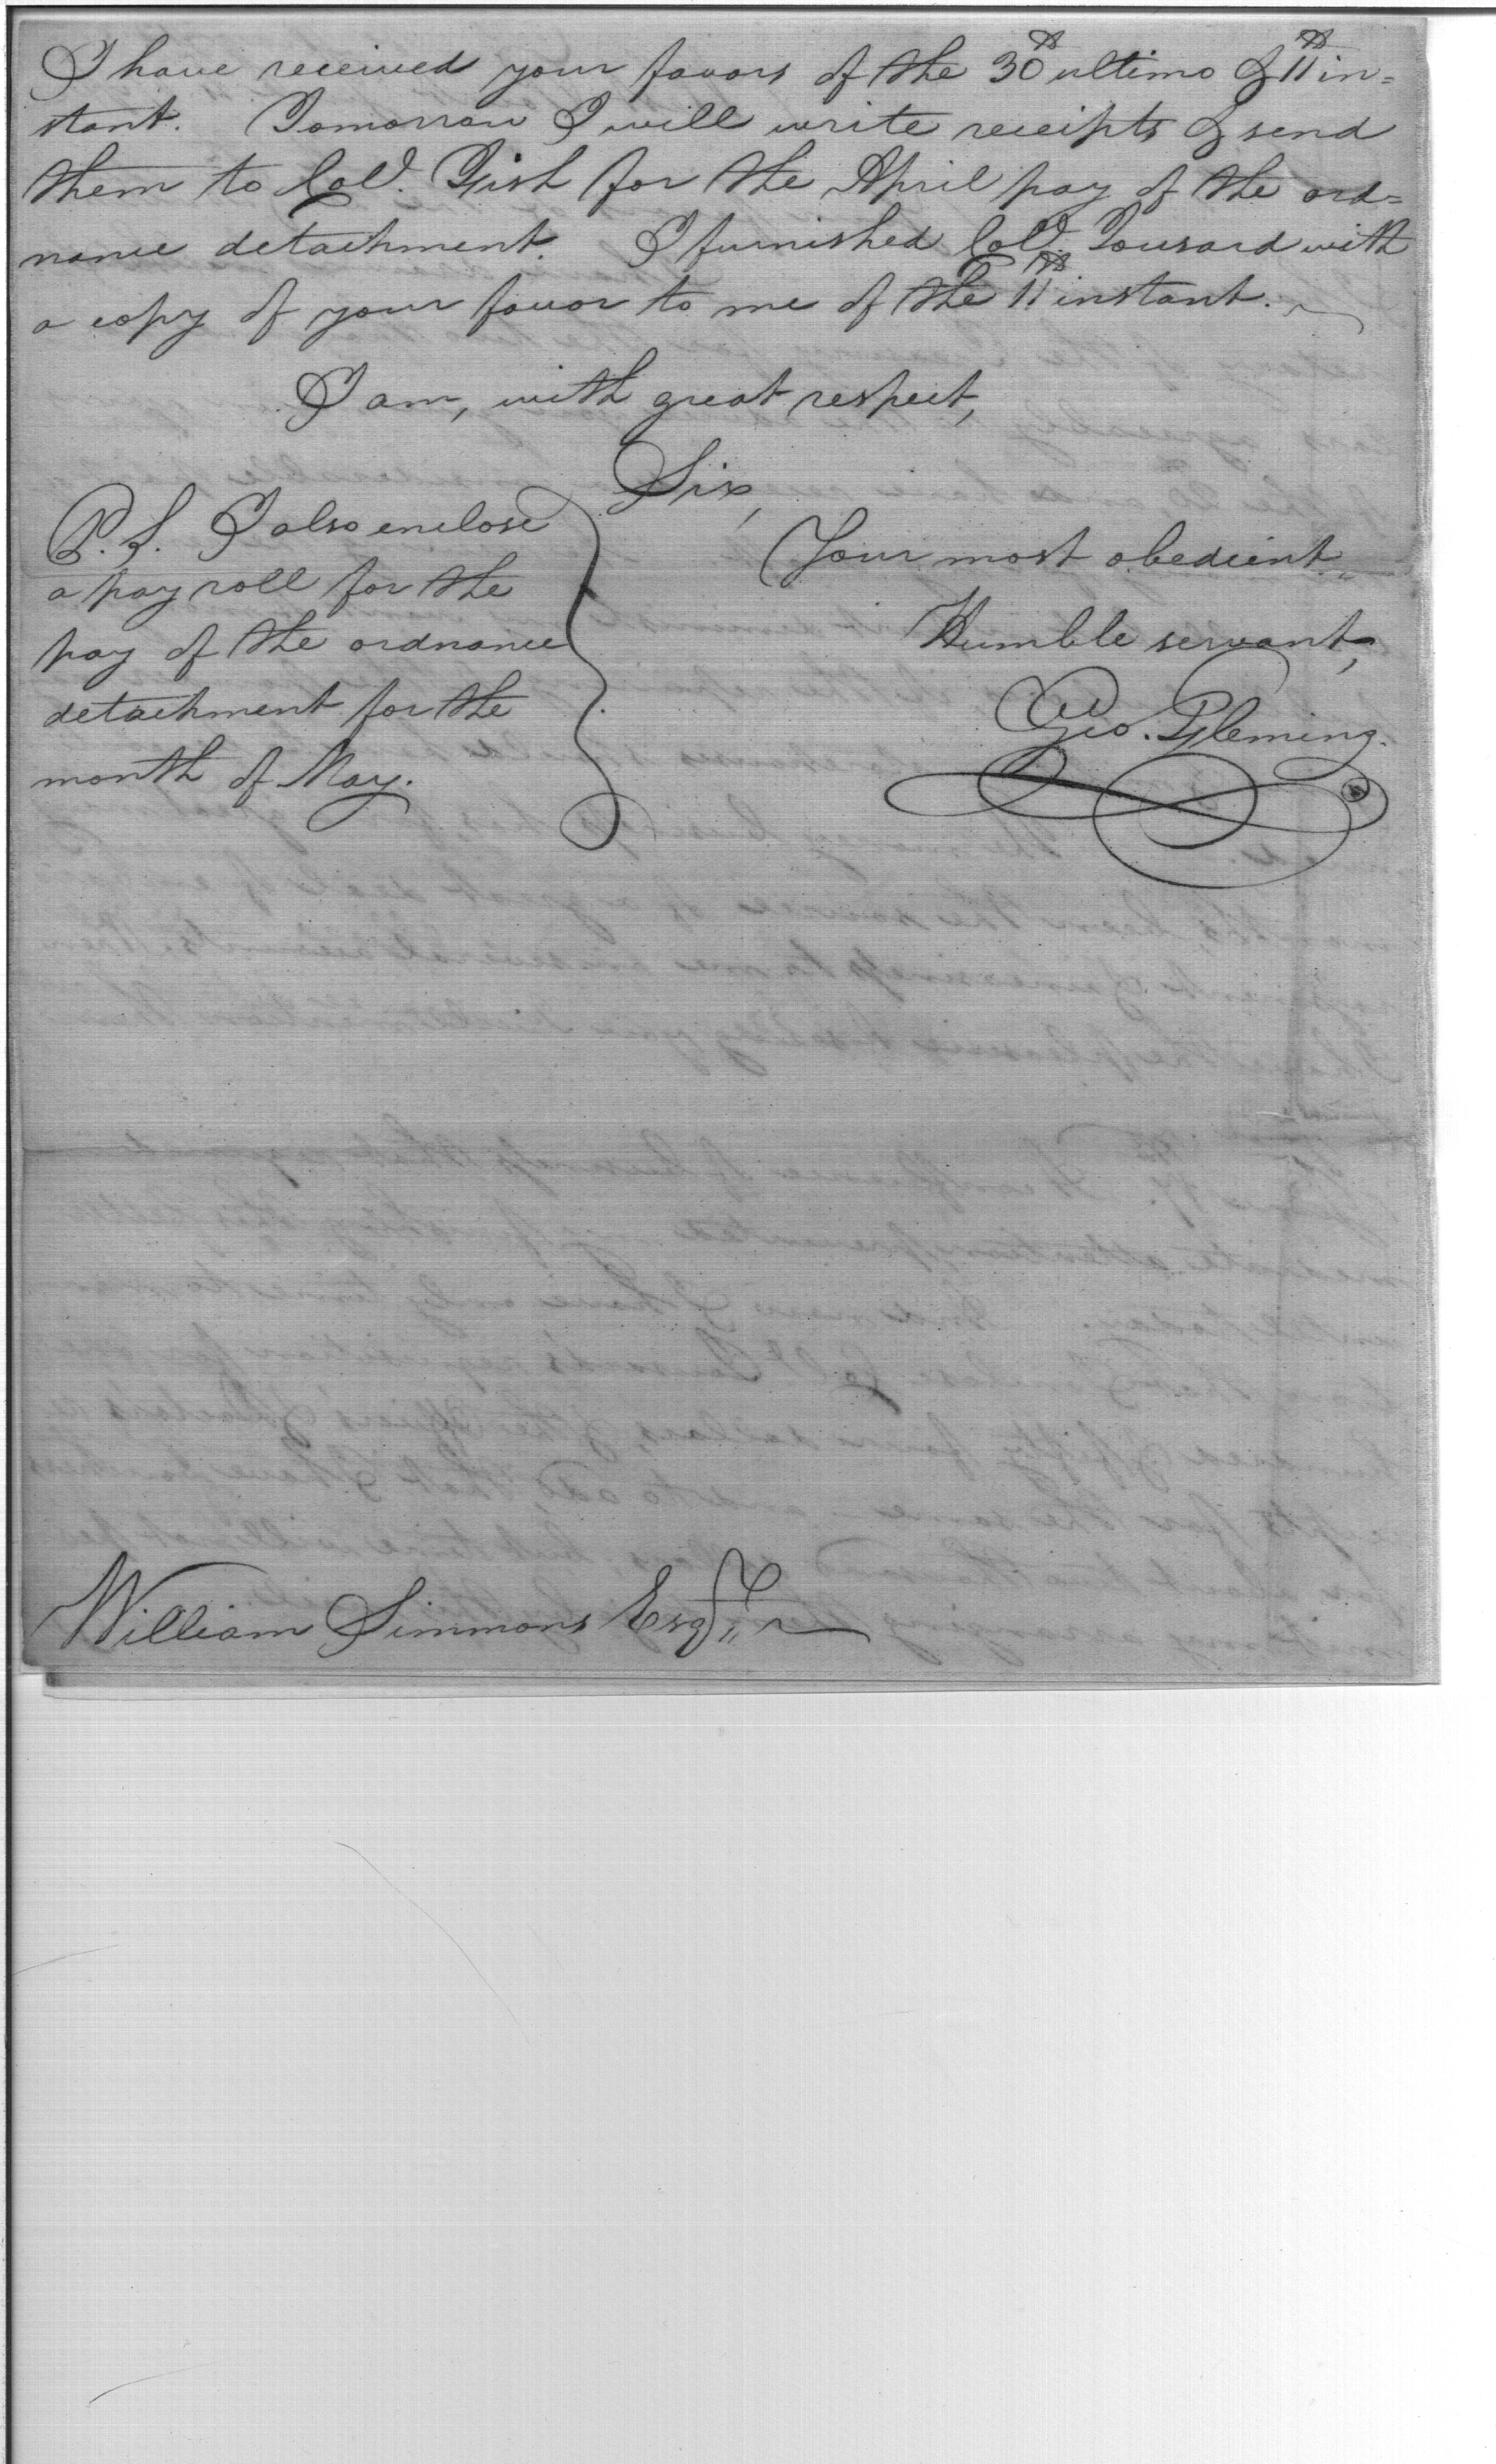 I have received your favors of the 30th ultimo & 11th in=
stant. Tomorrow I will write receipts & send
them to Col. Gish for the April pay of the ord=
nance detachment. I furnished Col. Tousard with
a copy of your favor to me of the 11th instant.
I am, with great respect,
Sir,
Your most obedient
Humble servant,
Geo. Fleming.
P.S. I also enclose
a pay roll for the
pay of the ordnance
detachment for the
month of May.
William Simmons Esqr